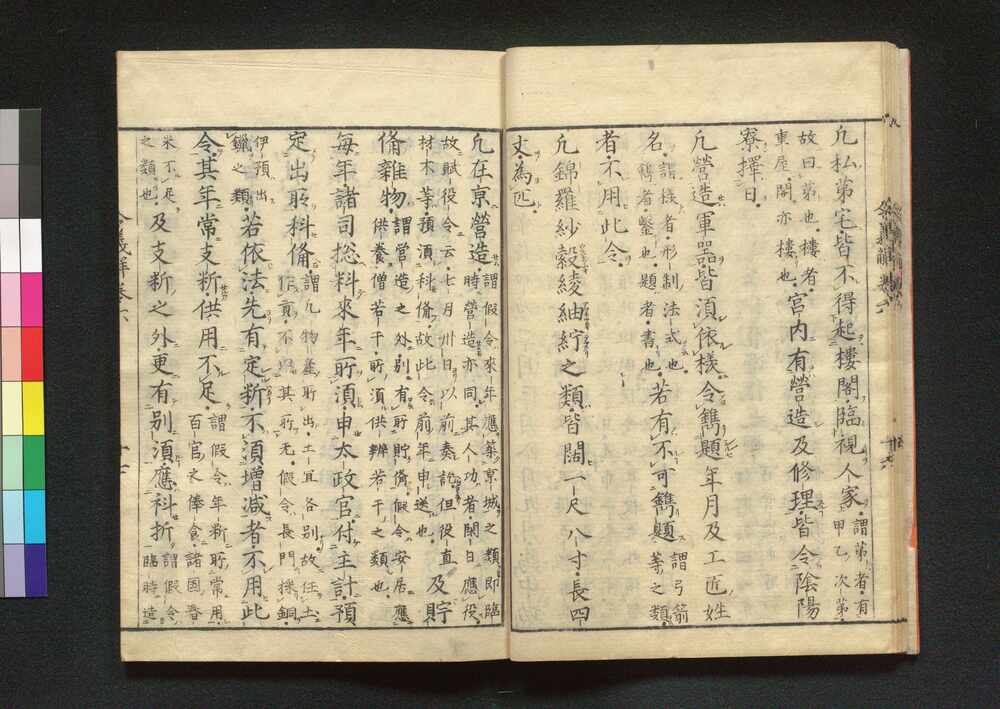 凡私第宅皆不得起樓閣臨視人家謂弟者有甲乙次第
故曰弟也樓者重屋閣亦樓也宮内有營造及修理皆令陰陽
寮擇日
凡營造軍器皆須依樣令鐫題年月及工匠姓
名謂樣者形制法式也鐫者鑿也題者書也若有不可鐫題謂弓箭等之類
者不用此令
凡錦羅紗縠綾紬紵之類皆闊一尺八寸長四
丈為匹
凡在京營造謂假令來年應築京城之類即臨時營造亦同其人功者閑日應役
故賦役令云七月卅日以前奏訖但役直材木等預須科備故此令前年申送也及貯
備雜物謂營造之外別有所貯備假令安居應供養僧若干所須供辨若干之類也
每年諸司総料來年所須申太政官付主計預
定出所科備謂凡物產所出土宜各別故任土作貢不與其所无假令長門採銅
伊預出鑞之類若依法先有定断不須增減者不用此
令其年常支断供用不足謂假令年断所常用百官之俸食諸国舂
米不足之類也及支断之外更有別須應科折謂假令臨時造